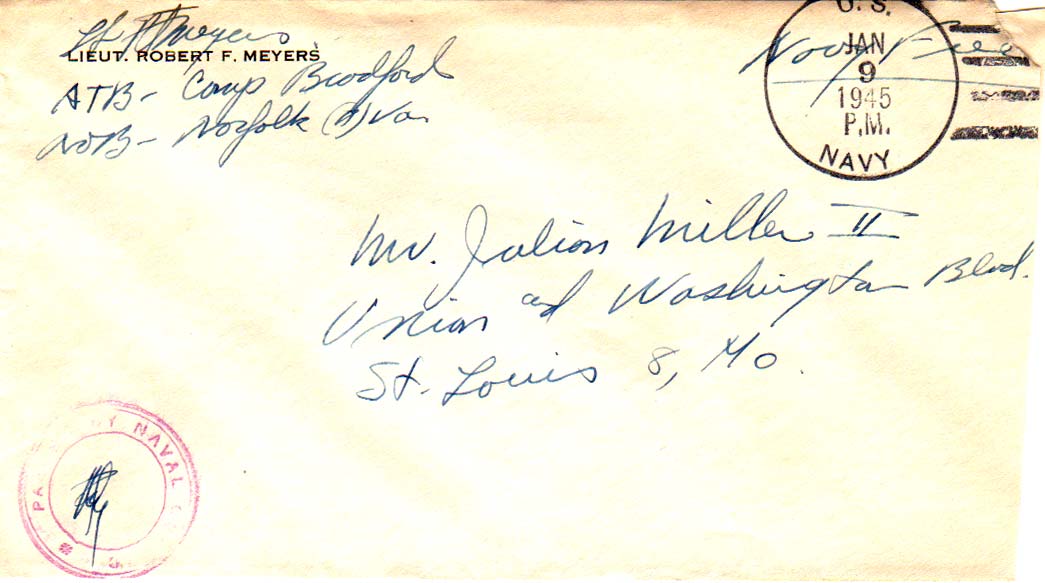 Lt RFMeyers
LIEUT. ROBERT F. MEYERS
ATB - Camp Bradford
NOB - Norfolk (11) Va
U.S.
JAN
9
1945
P.M.
NAVY
Navy Free
Mr. Julian Miller II
Union and Washington Blvd.
St. Louis 8, Mo.
PASSED BY NAVAL